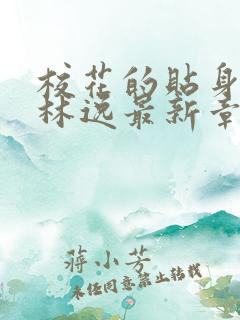 校花的贴身
林逸最新章
蒋小芳
未经同意禁止转载